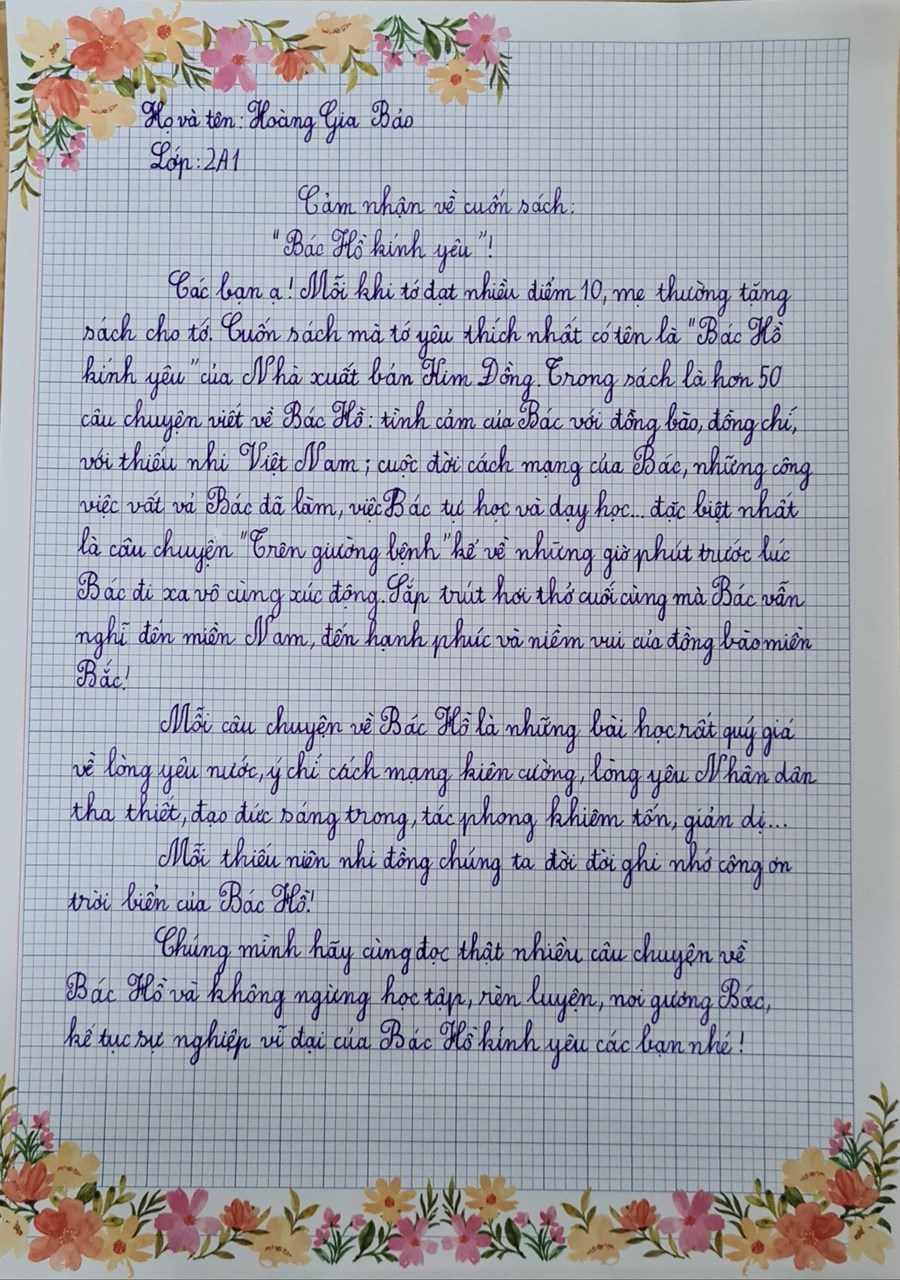 Họ và tên: Hoàng Gia Bảo
Lớp: 2A1
Cảm nhận về cuốn sách:
"Bác Hồ kính yêu"!
Các bạn ạ! Mỗi khi tớ đạt nhiều điểm 10, mẹ thường tặng
sách cho tớ. Cuốn sách mà tớ yêu thích nhất có tên là "Bác Hồ
kính yêu" của Nhà xuất bản Kim Đồng. Trong sách là hơn 50
câu chuyện viết về Bác Hồ: tình cảm của Bác với đồng bào, đồng chí,
với thiếu nhi Việt Nam; cuộc đời cách mạng của Bác, những công
việc vất vả Bác đã làm, việc Bác tự học và dạy học... đặc biệt nhất
là câu chuyện "Trên giường bệnh" kể về những giờ phút trước lúc
Bác đi xa vô cùng xúc động. Sắp trút hơi thở cuối cùng mà Bác vẫn
nghĩ đến miền Nam, đến hạnh phúc và niềm vui của đồng bào miền
Bắc!
Mỗi câu chuyện về Bác Hồ là những bài học rất quý giá
về lòng yêu nước, ý chí cách mạng kiên cường, lòng yêu Nhân dân
tha thiết, đạo đức sáng trong, tác phong khiêm tốn, giản dị...
Mỗi thiếu niên nhi đồng chúng ta đời đời ghi nhớ công ơn
trời biển của Bác Hồ!
Chúng mình hãy cùng đọc thật nhiều câu chuyện về
Bác Hồ và không ngừng học tập, rèn luyện, noi gương Bác,
kế tục sự nghiệp vĩ đại của Bác Hồ kính yêu các bạn nhé!